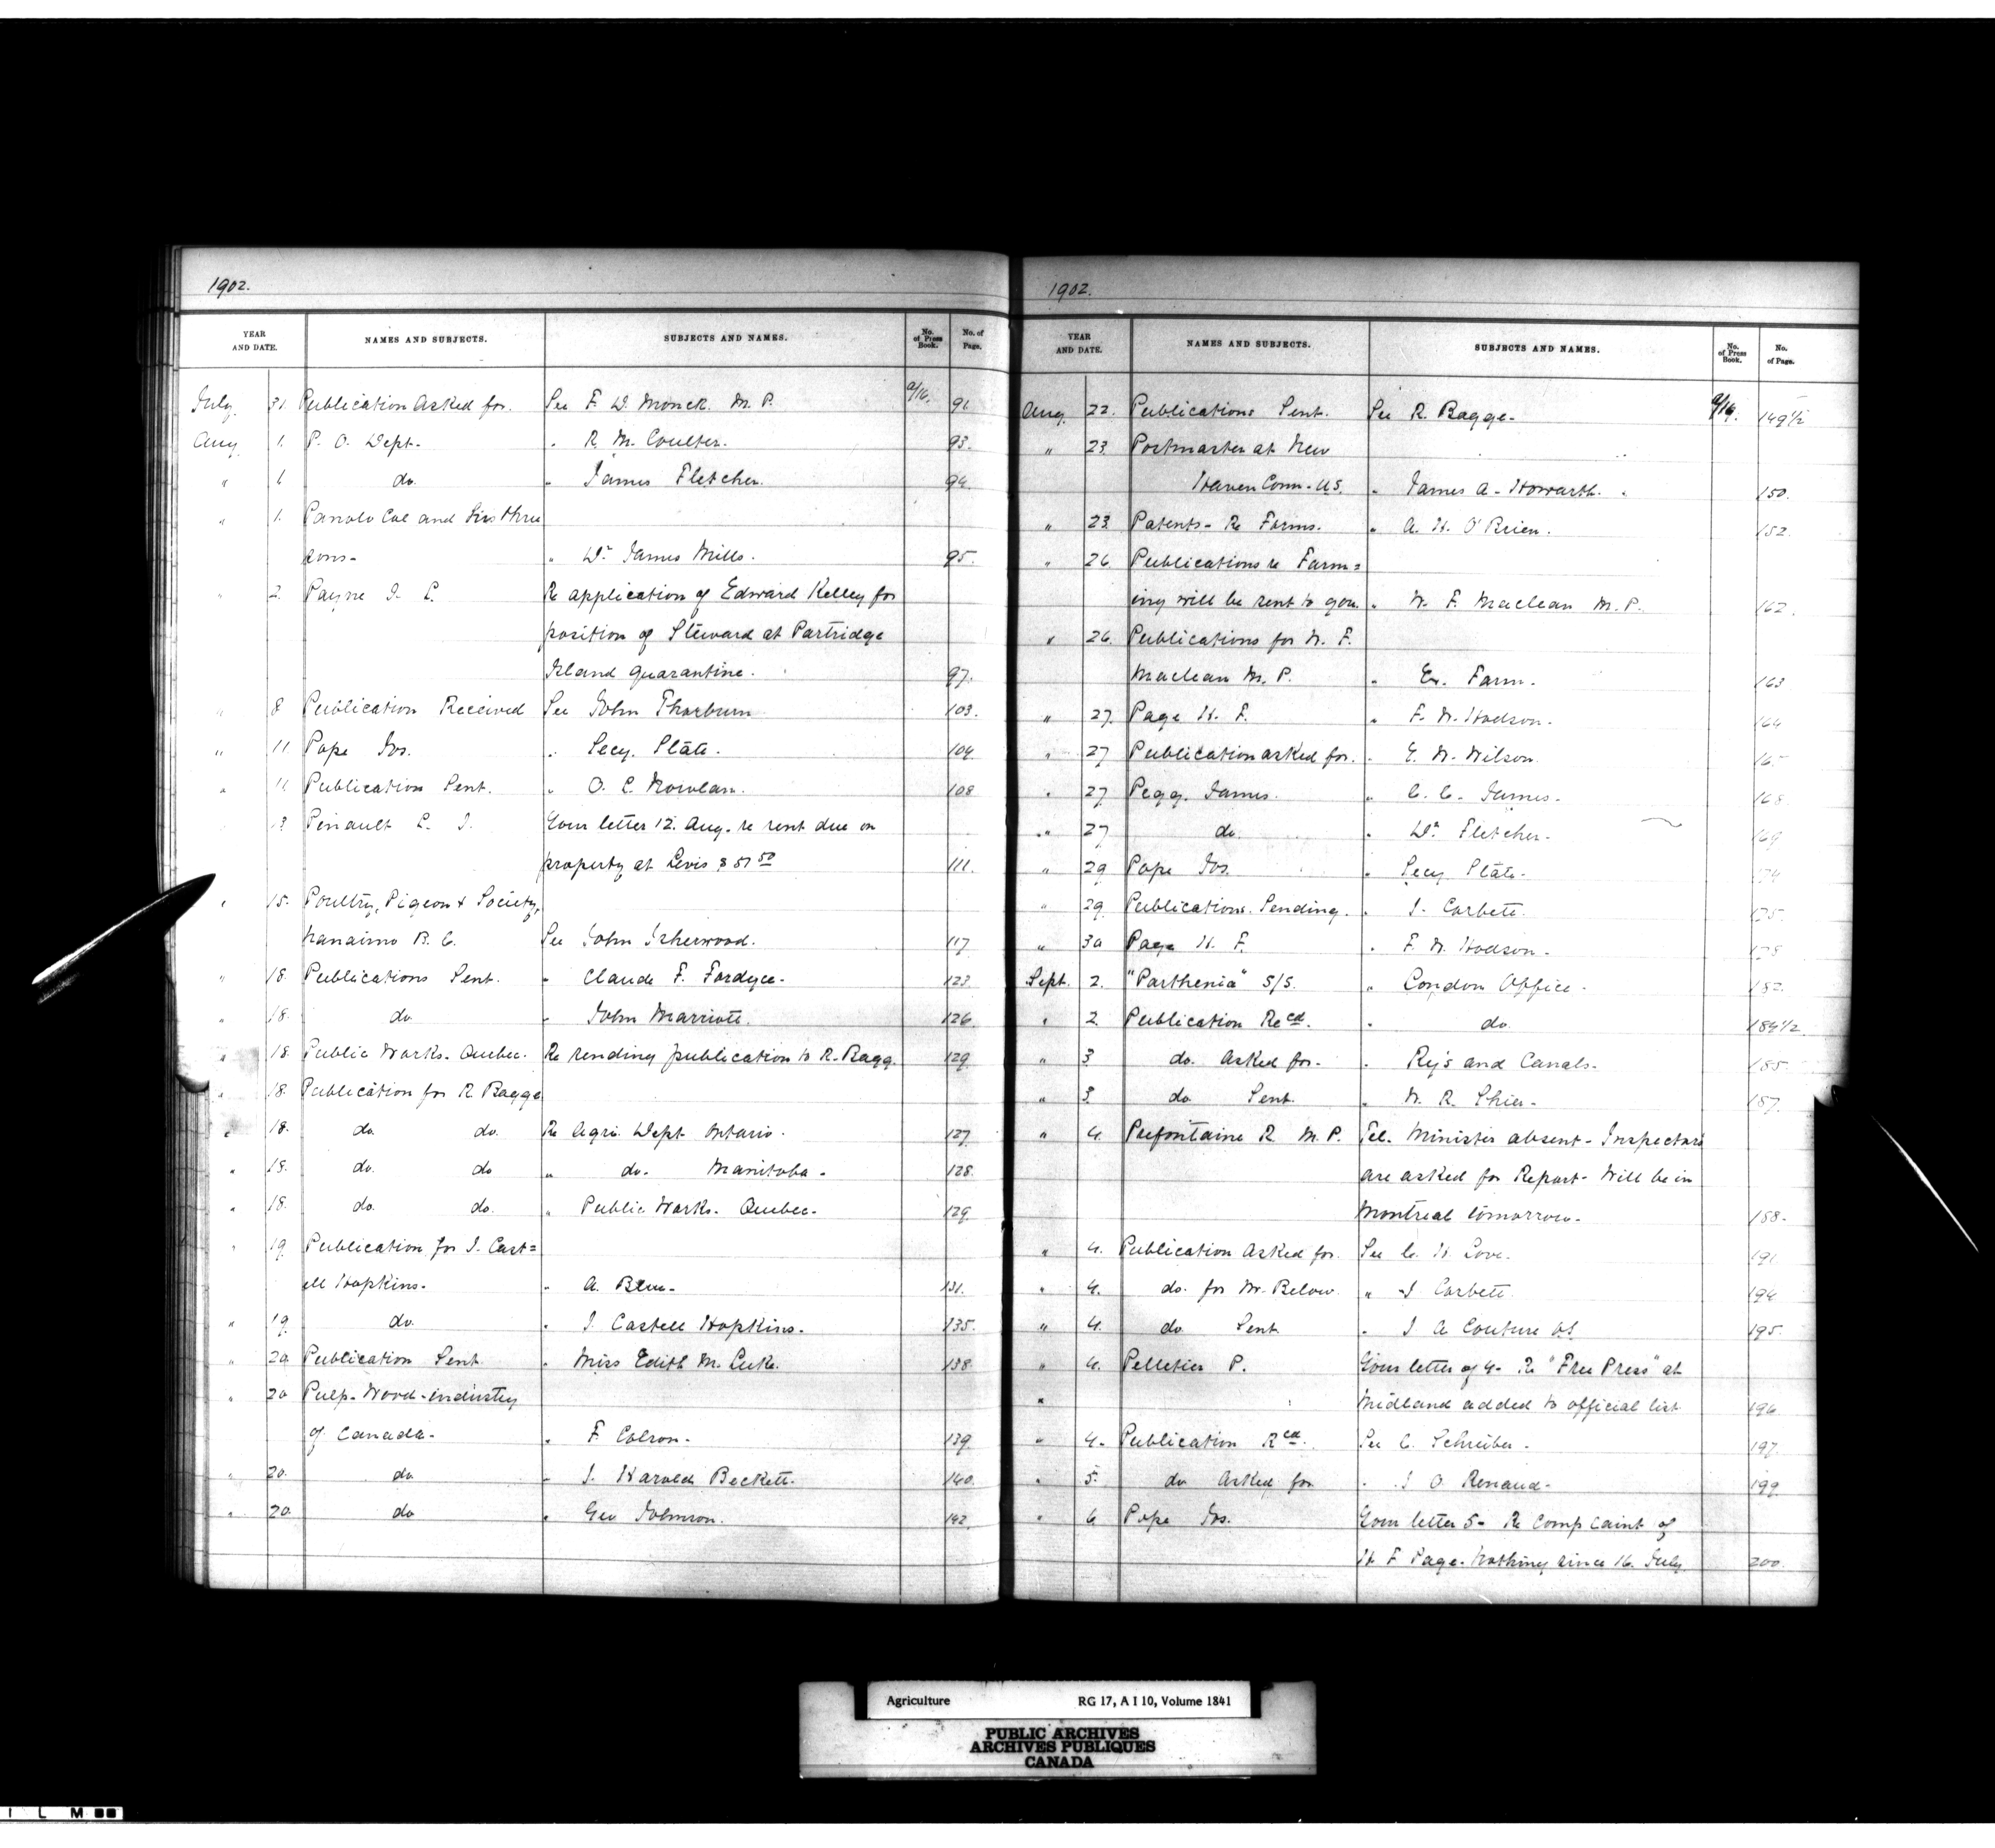 1902.
YEAR AND DATE. NAMES AND SUBJECTS. SUBJECTS AND NAMES. No. of Press Book. No. of Page.
July 31. Publication Asked for. See F. D. Monck. M. P. a/16. 91
Aug 1. P. O. Dept. " R. M. Coulter. 93.
" 1 do. " James Fletcher. 94.
" 1. and
" Dr. James Mills. 95.
" 2. Payne J. L. Re application of Edward Kelley for
position of Steward at Partridge
Island Quarantine. 97.
" 8 Publication Received See John Thorburn 103.
" 11 Pope Jos. " Secy. State. 104.
" 11 Publication Sent. " O. C. Nowlan. 108
13 Pinault L. J. Your letter 12. Aug. re rent due on
property at Levis $ 57 50 111.
" 15. Poultry, Pigeon & Society,
Nanaimo B. C. See John Isherwood. 117
" 18. Publications Sent. " Claude F. Fordyce. 123
" 18. do " John Marriott. 126.
" 18. Public Works. Quebec. Re sending publication to R. Bagg. 129.
" 18. Publication for R. Bagge
" 18. do. do. Re Agri. Dept. Ontario. 127.
" 18. do. do " do. Manitoba. 128.
" 18. do. do. " Public Works. Quebec. 129.
" 19. Publication for J. Cast=
ell Hopkins. " A. Blue. 131.
" 19. do. " J. Castell Hopkins. 135.
" 20. Publication Sent. " Miss Edith M. Luke. 138.
" 20 Pulp-Wood-industry
of Canada. " F. Colson. 139.
" 20. do " J. Harold Beckett. 140.
" 20. do " Geo Johnson. 142.
1902.
YEAR AND DATE. NAMES AND SUBJECTS. SUBJECTS AND NAMES. No. of Press Book. No. of Page.
Aug. 22. Publications Sent. See R. Bagge. a/16. 149 1/2
" 23 Postmaster at New
Haven Conn. U.S. " James A. Howarth. 150.
" 23 Patents- Re Farms. " A. H. O'Brien. 152.
" 26. Publications re Farm=
ing will be sent to you. " W. F. Maclean M. P. 162.
" 26. Publications for W. F.
Maclean M. P. " Ex. Farm. 163
" 27. Page H. F. " F. W. Hodson. 164
" 27 Publication asked for. " E. W. Wilson. 165
" 27 Pegg. James. " C. C. James. 168
" 27 do. " Dr. Fletcher. 169
" 29 Pope Jos. " Secy State. 174
" 29. Publications. Sending. " J. Corbett. 175.
" 30 Page H. F. " F. W. Hodson. 178
Sept. 2. "Parthenia" S/S. " London Office. 182.
" 2. Publication Recd. " do. 184 1/2.
" 3 do. Asked for. " Ry's and Canals. 185.
" 3. do Sent. " W. R. Shier. 187.
" 4. Prefontaine R. M. P. Tel. Minister absent- Inspectors
are asked for Report- Will be in
Montreal tomorrow. 188.
" 4. Publication Asked for. See C. H. Love. 191
" 4. do. for Mr. Below. " J Corbett. 194
" 4. do Sent " J A Couture VS. 195.
" 4. Pelletier P. Your letter of 4- Re "Free Press" at
" Midland added to official list 196
" 4. Publication Recd. See C. Schreiber. 197.
" 5. do Asked for " J O. Renaud. 199
" 6 Pope Jos. Your letter 5- Re Complaint of
H. F Page. Nothing since 16. July 200.
Agriculture RG 17, A I 10, Volume 1841
PUBLIC ARCHIVES
ARCHIVES PUBLIQUES
CANADA
I L M